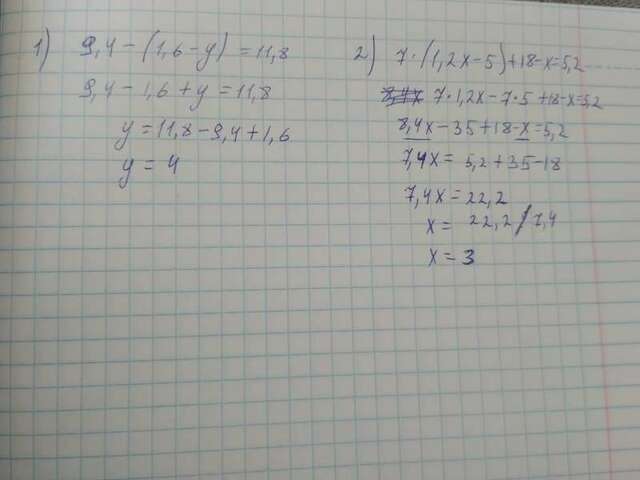 1) 9,4 - (1,6 - y) = 11,8
9,4 - 1,6 + y = 11,8
y = 11,8 - 9,4 + 1,6
y = 4
2) 7 · (1,2x - 5) + 18 - x = 5,2
7 · 1,2x - 7 · 5 + 18 - x = 5,2
8,4x - 35 + 18 - x = 5,2
7,4x = 5,2 + 35 - 18
7,4x = 22,2
x = 22,2 / 7,4
x = 3